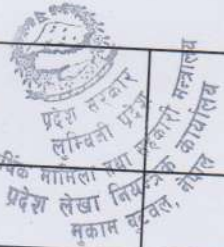 प्रदेश सरकार
लुम्बिनी प्रदेश
र्थिक मामिला तथा सहकारी मन्त्रालय
प्रदेश लेखा नियन्त्रक कार्यालय
मुकाम बुटवल, नेपाल